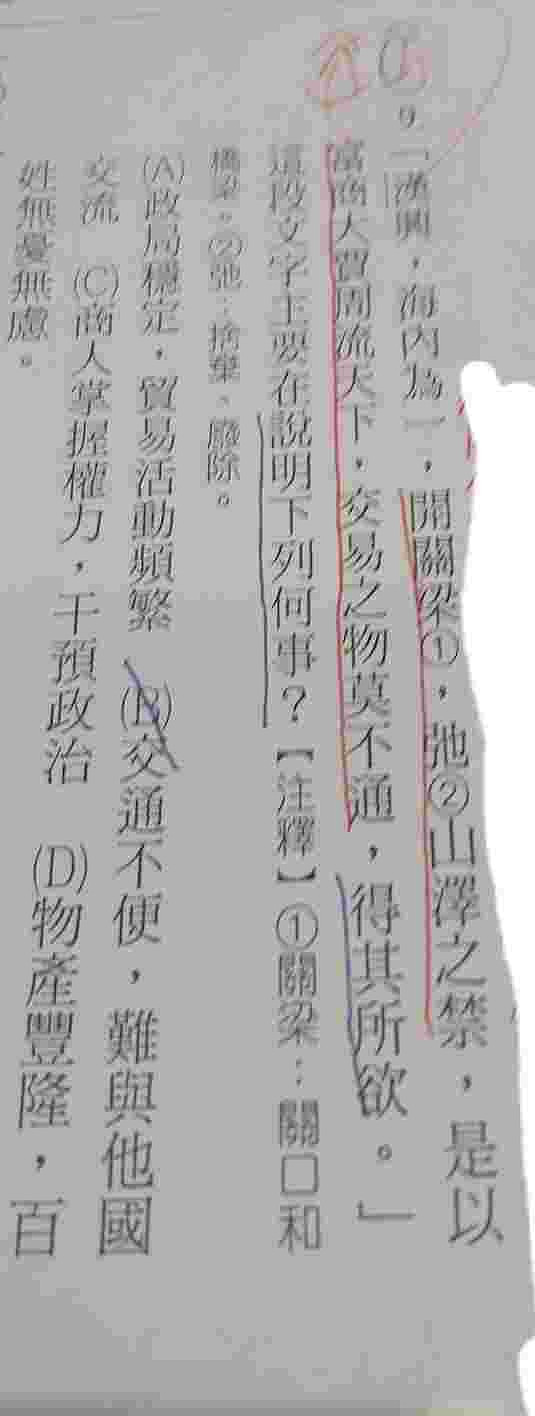 9.「漢興，海內為一，開關梁①，弛②山澤之禁，是以
富商大賈周流天下，交易之物莫不通，得其所欲。」
這段文字主要在說明下列何事？【注釋】①關梁：關口和
橋梁。②弛：捨棄、廢除。
(A)政局穩定，貿易活動頻繁　(B)交通不便，難與他國
交流　(C)商人掌握權力，干預政治　(D)物產豐隆，百
姓無憂無慮。